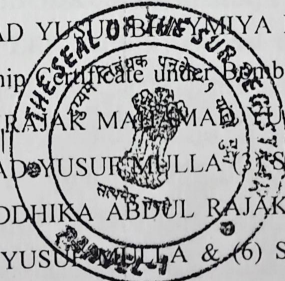 AD YUSUF
MIYA
ship certificate under Bomb
RAJAK MAHAMAD
AD YUSUF MULLA (3) S
DDHIKA ABDUL RAJAK
YUSUF MULLA & (6) S
THE SEAL OF THE SUB REGISTRAR
सत्यमेव जयते
PANVEL-1